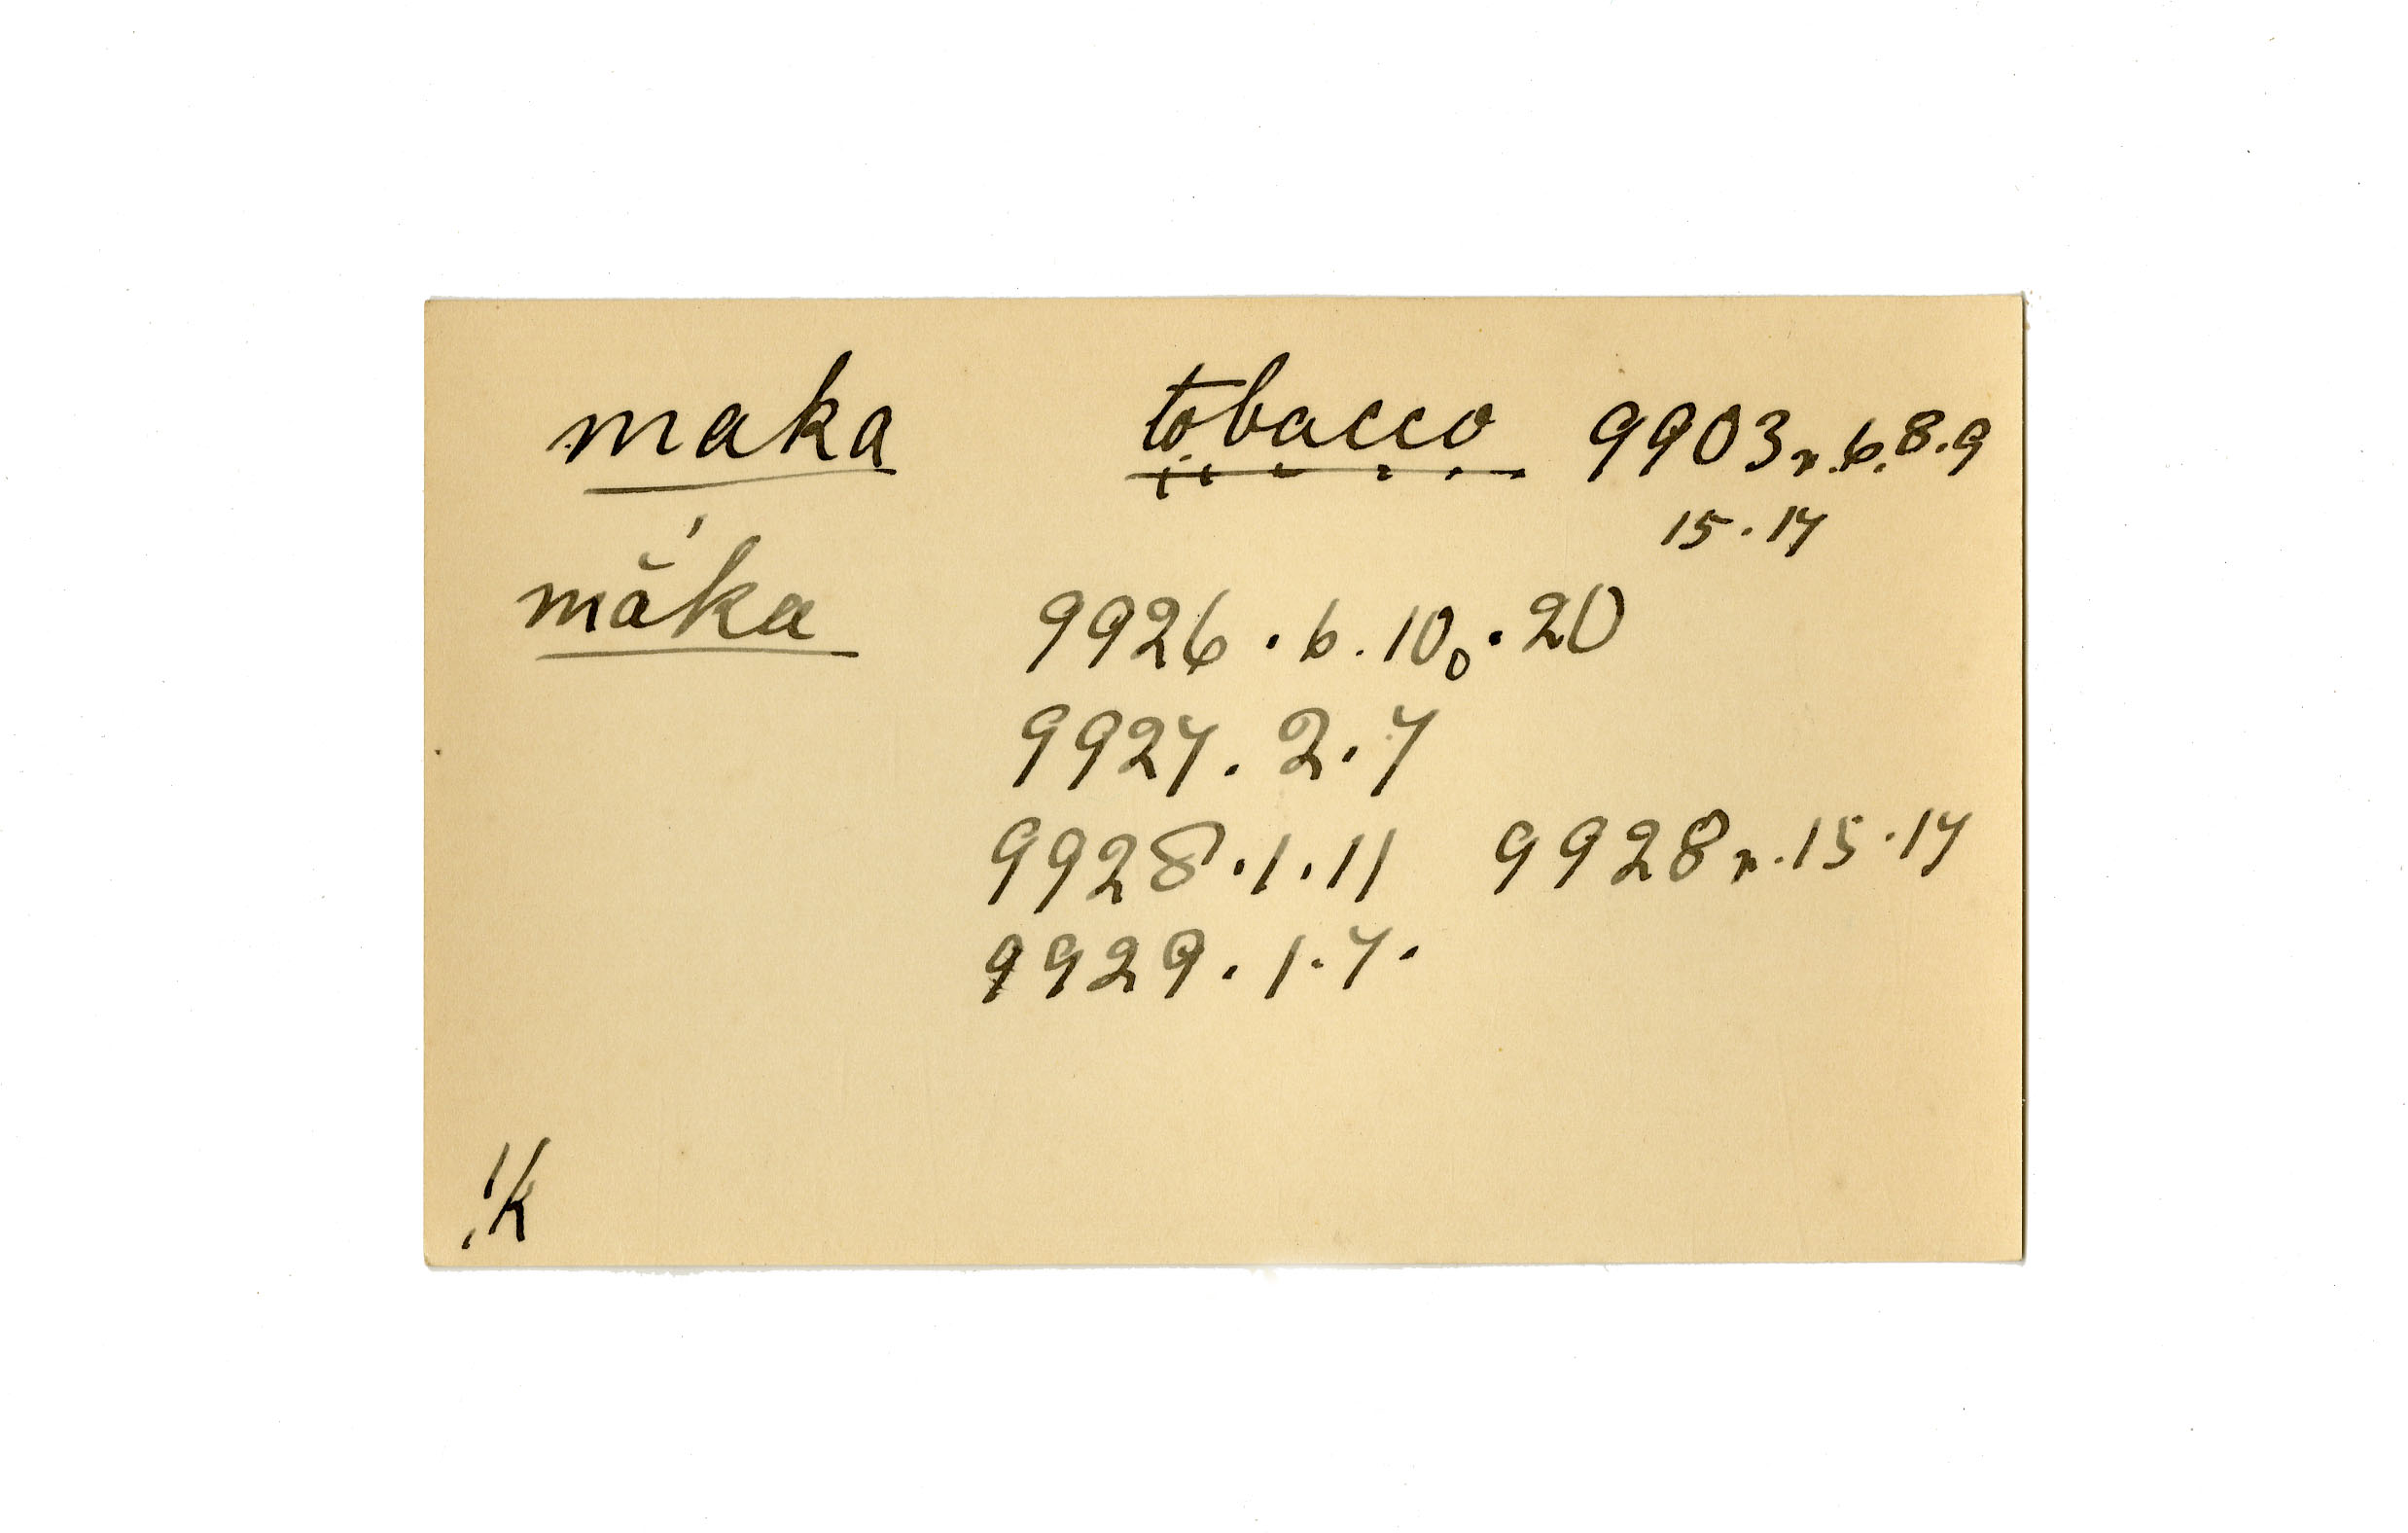 maka tobacco 9903n.6.8.9
15.17
mắka 9926.6.10o.20
9927.2.7
9928.1.11 9928n.15.17
9929.1.7.
!k